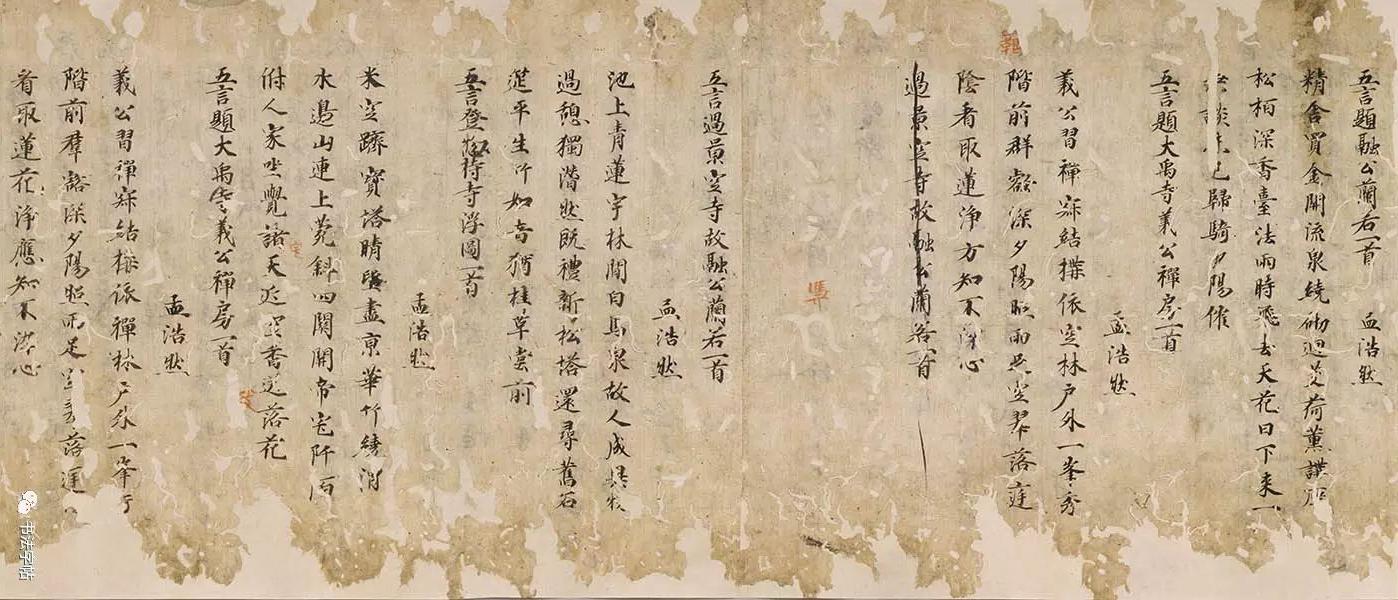 五言題融公蘭若一首 孟浩然
精舍買金開流泉繞砌迴芰荷薰講
松柏深香臺法雨時飛去天花日下来一
談已歸騎夕陽催
五言題大禹寺義公禪房一首
孟浩然
義公習禪寂結構依空林戶外一峯秀
階前群壑深夕陽照雨空翠落庭
陰看取蓮淨方知不染心
過景空寺故融公蘭若一首
五言過景空寺故融公蘭若一首
孟浩然
池上青蓮宇林間白馬泉故人成異物
過憩獨潸然既禮新松塔還尋舊石
筵平生竹如意猶挂草堂前
五言登惣持寺浮圖一首
孟浩然
米空躋寶塔晴盡京華竹繞渭
水邊山連上菀斜四關開帝宅阡陌
俯人家坐覺諸天近香送落花
五言題大禹寺義公禪房一首
孟浩然
義公習禪寂結構依禪林戶外一峯
階前羣壑深夕陽照雨足落
看取蓮花淨應知不染心
书法字帖